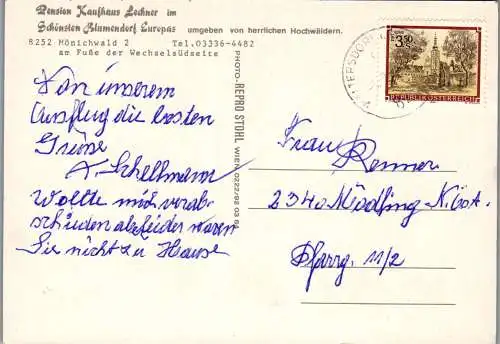 Pension Kaufhaus Lechner im
Schönsten Blumendorf Europas umgeben von herrlichen Hochwäldern.
8252 Mönichwald 2 Tel.03336-4482
am Fuße der Wechselsüdseite
Von unserem
Ausflug die besten
Grüsse
A. Schellmann
Wollte mich verab-
schieden aber leider waren
Sie nicht zu Hause
PHOTO-REPRO STOHL WIEN 0222/92 03 94
3.50
REPUBLIK ÖSTERREICH
Frau Renner
2340 Mödling N.Öst.
Pfarrg. 11/2